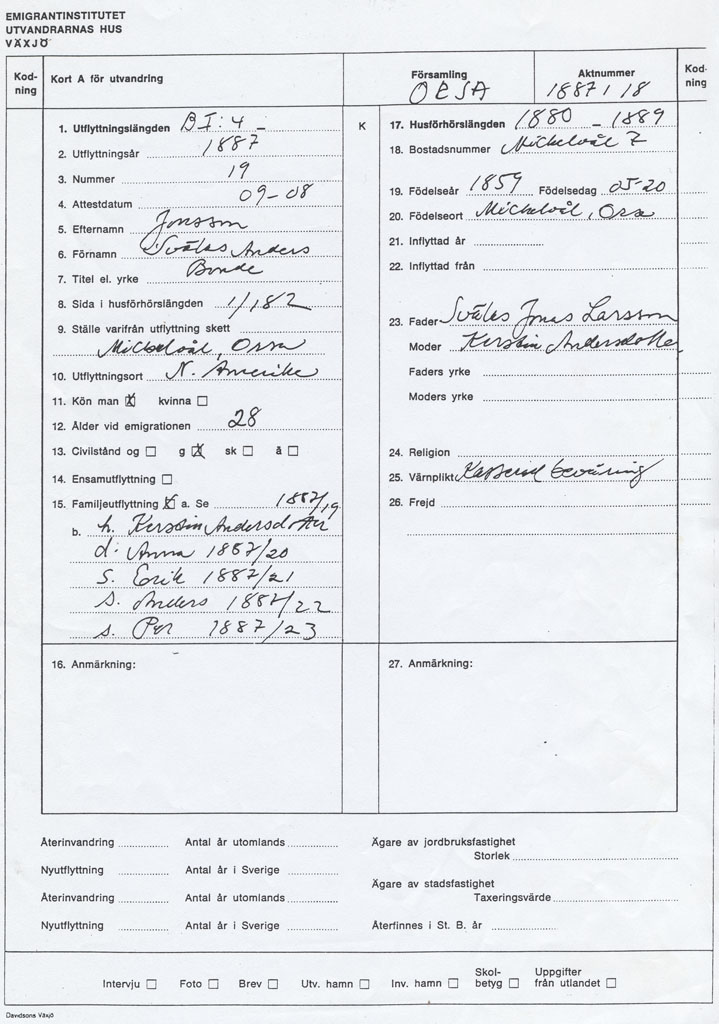 EMIGRANTINSTITUTET
UTVANDRARNAS HUS
VÄXJÖ
Kod-
ning
Kort A för utvandring
Församling
ORSA
Aktnummer
1887/18
Kod-
ning
1. Utflyttningslängden BI:4
2. Utflyttningsår 1887
3. Nummer 19
4. Attestdatum 09-08
5. Efternamn Jonsson
6. Förnamn Svälas Anders
7. Titel el. yrke Bonde
8. Sida i husförhörslängden 1/182
9. Ställe varifrån utflyttning skett
Mickelvål, Orsa
10. Utflyttningsort N. Amerika
11. Kön man ☒ kvinna ☐
12. Ålder vid emigrationen 28
13. Civilstånd og ☐ g ☒ sk ☐ ä ☐
14. Ensamutflyttning ☐
15. Familjeutflyttning ☒ a. Se 1887/19
b. h. Kerstin Andersdotter
d. Anna 1887/20
s. Erik 1887/21
s. Anders 1887/22
s. Per 1887/23
16. Anmärkning:
K
17. Husförhörslängden 1880 - 1889
18. Bostadsnummer Mickelvål 7
19. Födelseår 1859 Födelsedag 05-20
20. Födelseort Mickelvål, Orsa
21. Inflyttad år
22. Inflyttad från
23. Fader Svälas Jonas Larsson
Moder Kerstin Andersdotter
Faders yrke
Moders yrke
24. Religion
25. Värnplikt Kasserad beväring
26. Frejd
27. Anmärkning:
Återinvandring Antal år utomlands
Nyutflyttning Antal år i Sverige
Återinvandring Antal år utomlands
Nyutflyttning Antal år i Sverige
Ägare av jordbruksfastighet
Storlek
Ägare av stadsfastighet
Taxeringsvärde
Återfinnes i St. B. år
Intervju ☐ Foto ☐ Brev ☐ Utv. hamn ☐ Inv. hamn ☐ Skol-
betyg ☐ Uppgifter
från utlandet ☐
Davidsons Växjö